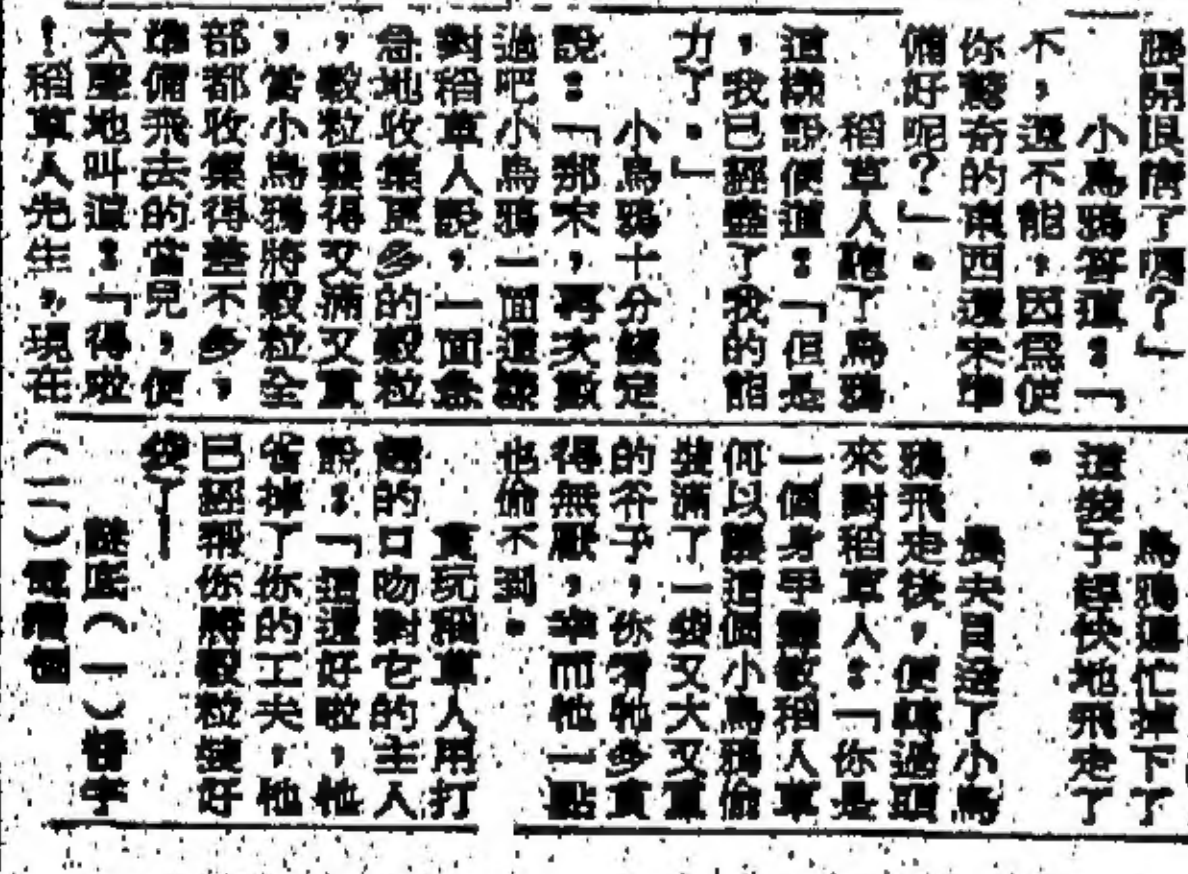 了嗎？」
小烏鴉答道：「
不，還不能，因爲使
你驚奇的東西還未準
備好呢？」。
稻草人聽了烏鴉
這樣說便道：「但是
，我已經盡了我的能
力了。」
小烏鴉十分鎮定
說：「那末，再次數
過吧小烏鴉一面這樣
對稻草人說，一面急
急地收集更多的穀粒
，穀粒裝得又滿又重
，當小烏鴉將穀粒全
部都收集得差不多，
準備飛去的當兒，便
大聲地叫道：「得啦
！稻草人先生，現在
烏鴉連忙掉下了
這袋子輕快地飛走了
。
農夫目送了小烏
鴉飛走後，便轉過頭
來對稻草人：「你是
一個身手靈敏稻人草
何以讓這個小烏鴉偷
裝滿了一袋又大又重
的谷子，你看牠多貪
得無厭，幸而牠一點
也偷不到。
貪玩稻草人用打
趣的口吻對它的主人
說：「這還好啦，牠
省掉了你的工夫，牠
已經帮你將穀粒裝好
袋了—
謎底（一）昔字
（二）